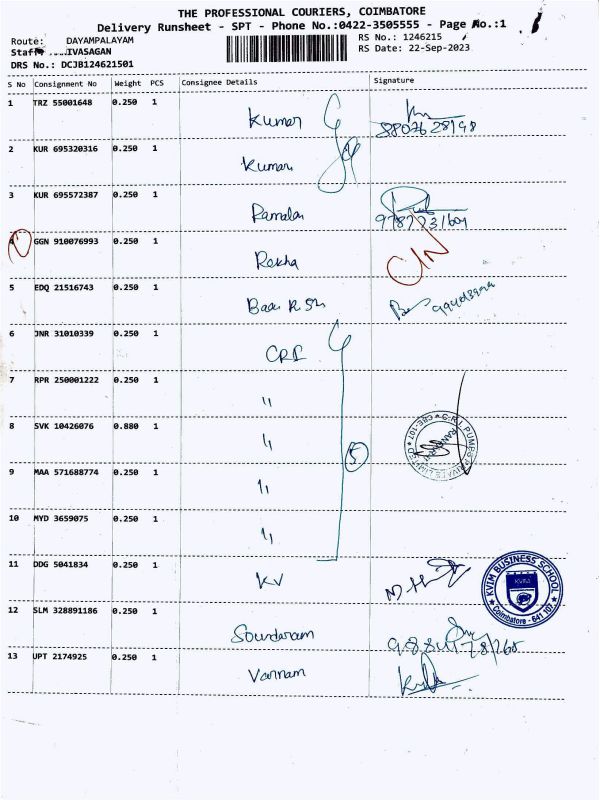 THE PROFESSIONAL COURIERS, COIMBATORE
Delivery Runsheet - SPT - Phone No.:0422-3505555 - Page No.:1
Route: DAYAMPALAYAM
RS No.: 1246215
Staff IVASAGAN
RS Date: 22-Sep-2023
DRS No.: DCJB124621501
S No Consignment No Weight PCS Consignee Details Signature
1 TRZ 55001648 0.250 1 Kumar
8807628198
2 KUR 695320316 0.250 1 Kumar
3 KUR 695572387 0.250 1 Ramalan
4 GGN 910076993 0.250 1 Rekha C/N
5 EDQ 21516743 0.250 1
6 JNR 31010339 0.250 1 CRI
7 RPR 250001222 0.250 1 "
8 SVK 10426076 0.880 1 " 5
C.R.I. PUMPS PRIVATE LIMITED CBE-107
9 MAA 571688774 0.250 1 "
10 MYD 3659075 0.250 1 "
11 DDG 5041834 0.250 1 KV
KVIM BUSINESS SCHOOL
KVIM
Coimbatore - 641 107
12 SLM 328891186 0.250 1 Soundaram
13 UPT 2174925 0.250 1 Varnam